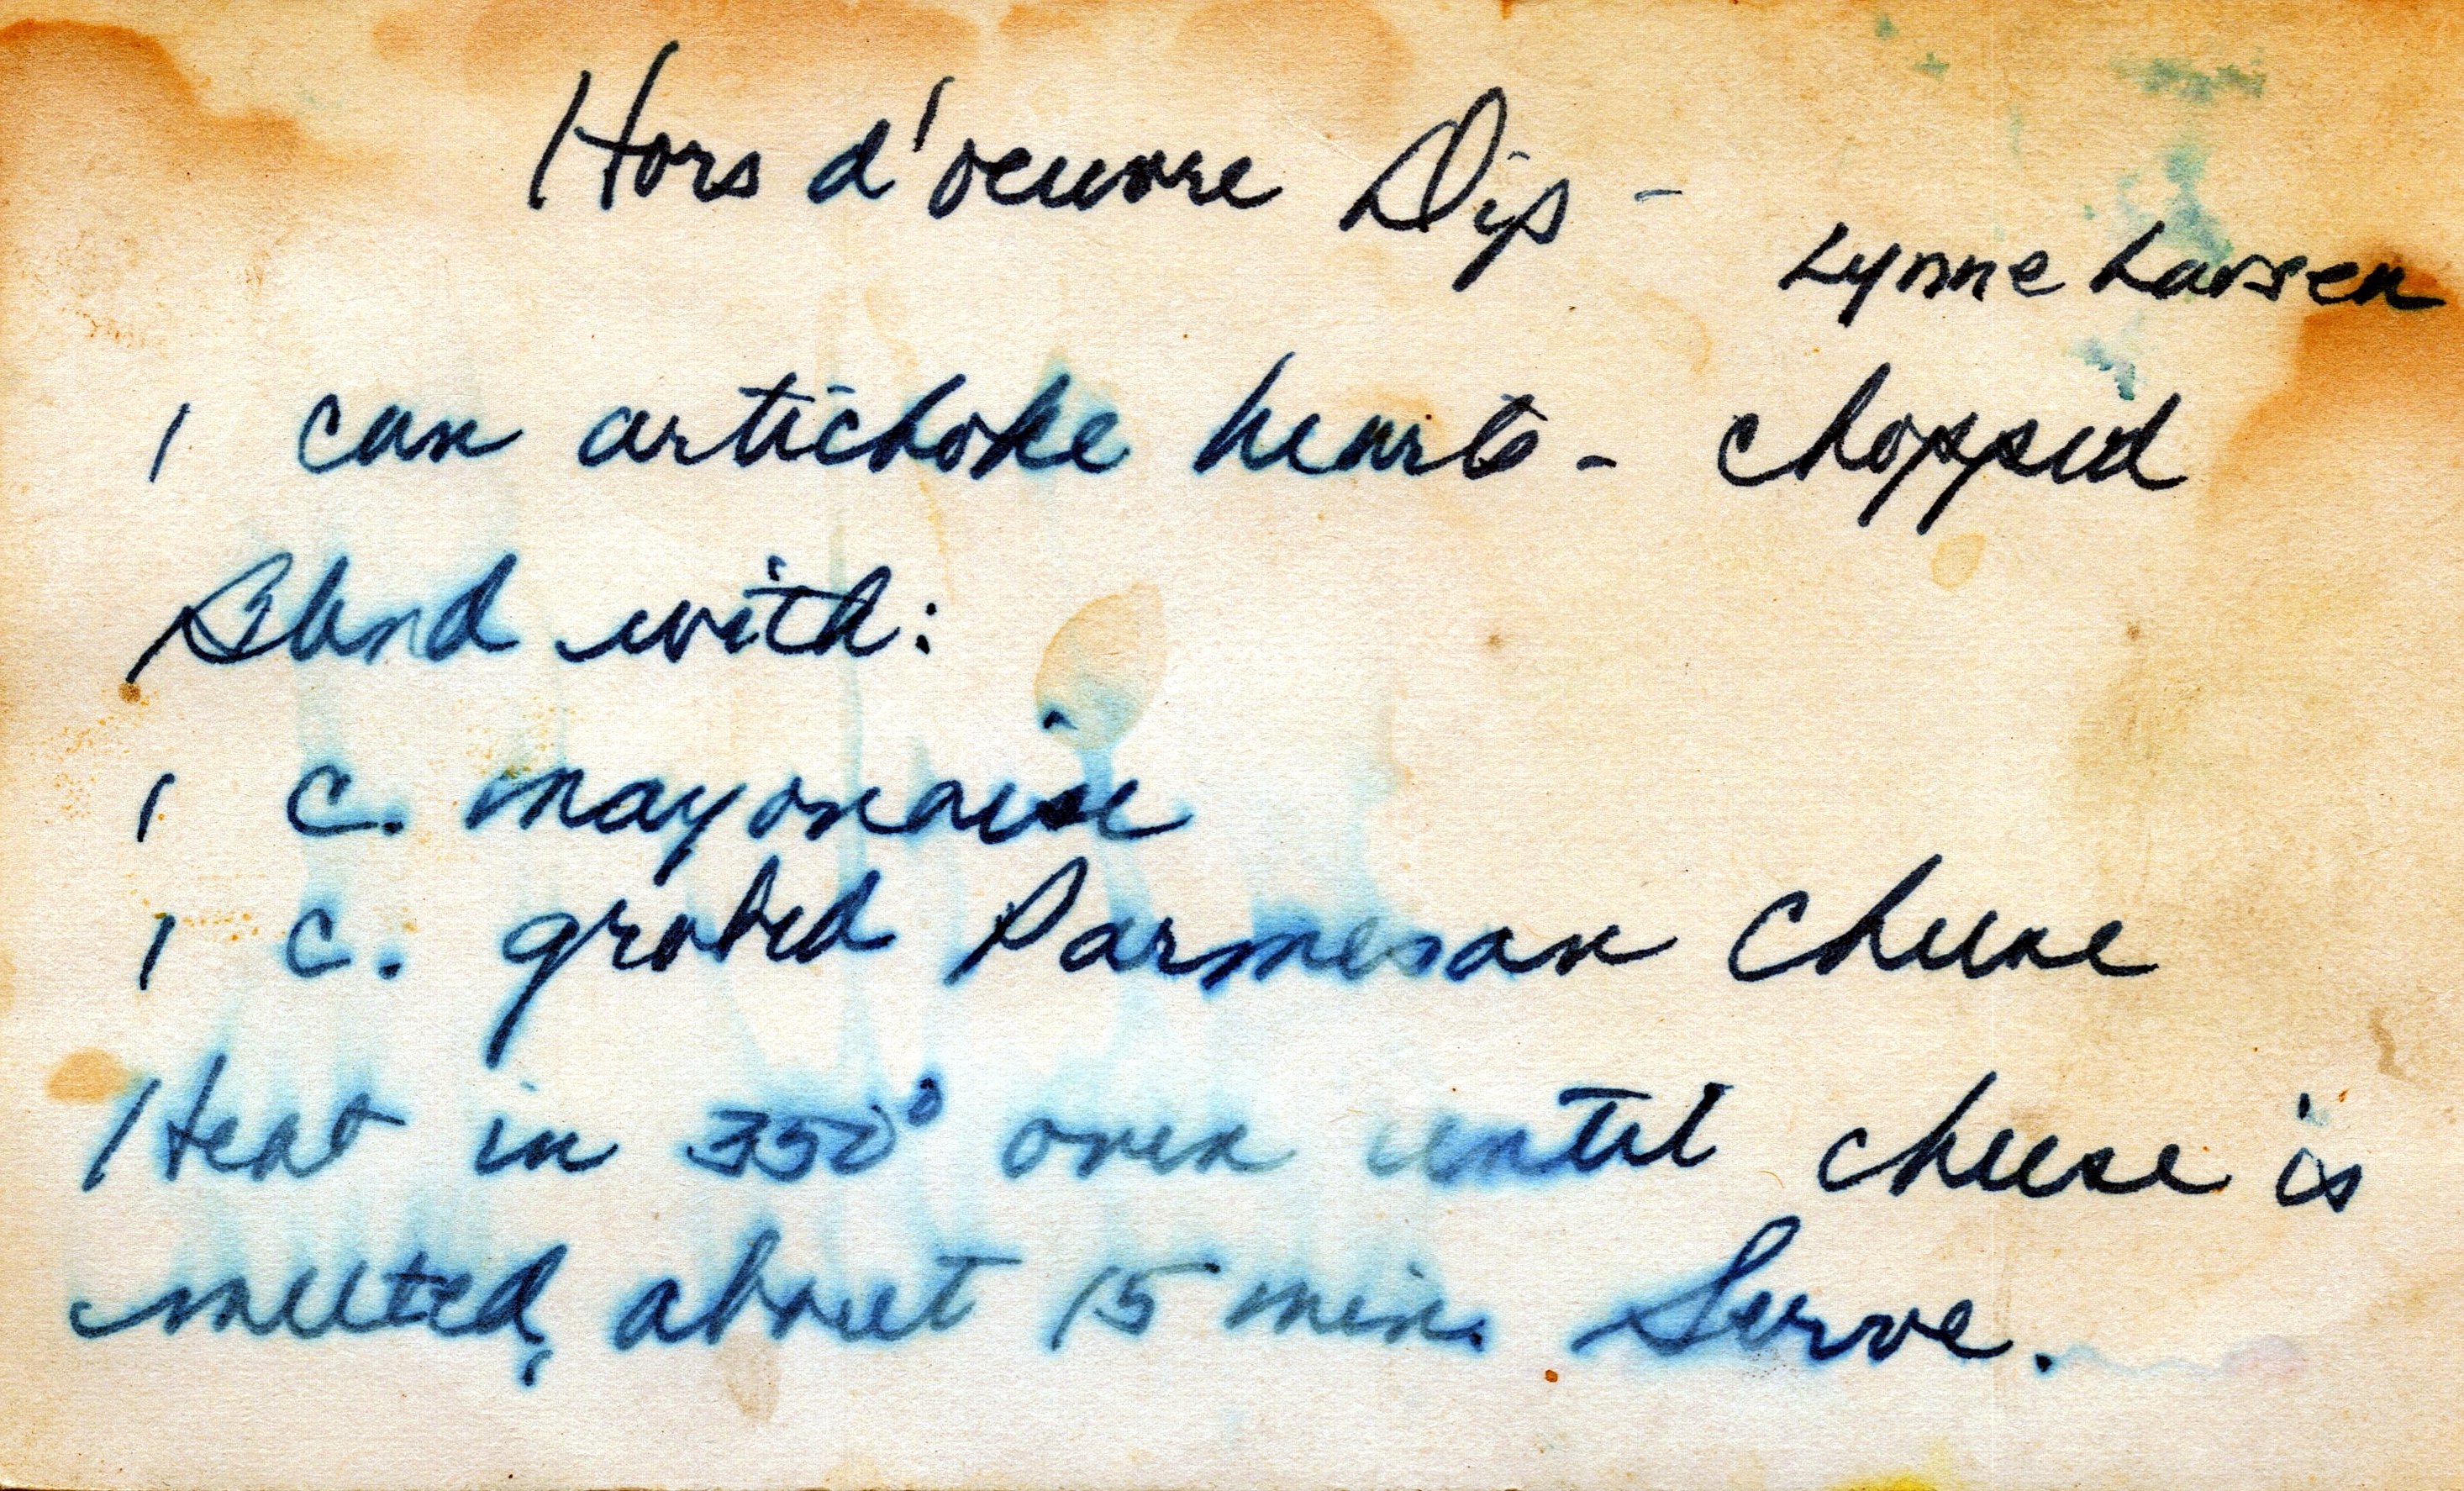 Hors d'oeuvre Dip -
Lynne Larsen
1 can artichoke hearts - chopped
Blend with:
1 c. mayonaise
1 c. grated Parmesan Cheese
Heat in 350° oven until cheese is
melted, about 15 min. Serve.